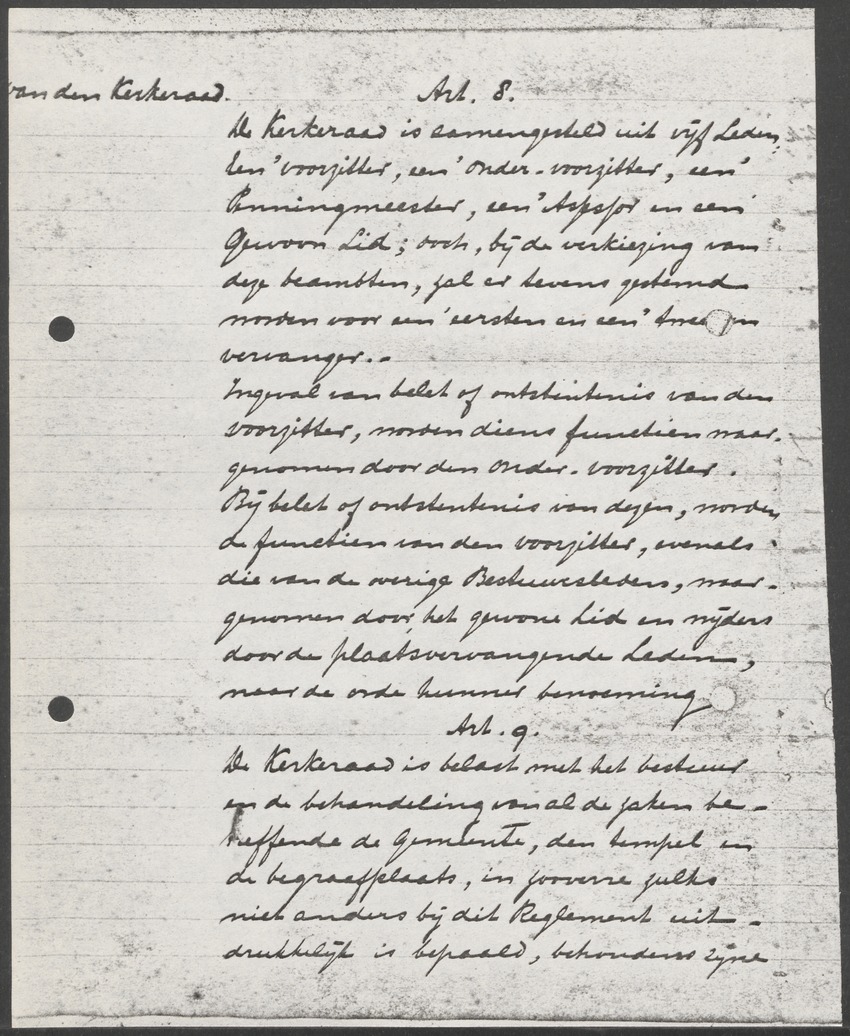 van den Kerkeraad.
Art. 8.
De Kerkeraad is samengesteld uit vijf Leden,
Een voorzitter, een onder-voorzitter, een
Penningmeester, een Assessor en een
Gewoon Lid; doch, bij de verkiezing van
deze beambten, zal er tevens gestemd
worden voor een eersten en een tweeden
vervanger.-
Ingeval van belet of ontstentenis van den
voorzitter, worden diens functien waar-
genomen door den onder-voorzitter.
Bij belet of ontstentenis van dezen, worden
de functien van den voorzitter, evenals
die van de overige Bestuursleden, waar-
genomen door het gewone Lid en wijders
door de plaatsvervangende Leden,
naar de orde hunner benoeming
Art. 9.
De Kerkeraad is belast met het bestuur
en de behandeling van al de zaken be-
treffende de Gemeente, den tempel en
de begraafplaats, in zooverre zulks
niet anders bij dit Reglement uit-
drukkelijk is bepaald, behoudens zijne